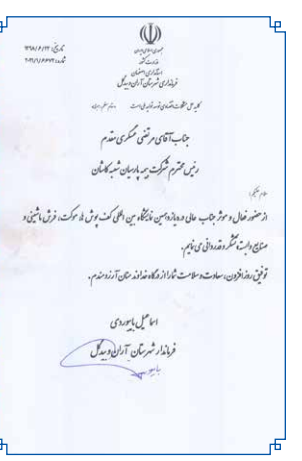 جمهوری اسلامی ایران
وزارت کشور
استانداری اصفهان
فرمانداری شهرستان آران و بیدگل
تاریخ: ۱۳۹۸/۶/۲۳
جناب آقای مرتضی عسگری مقدم
رئیس محترم شرکت بیمه پارسیان شعبه کاشان
سلام علیکم؛
از حضور فعال و موثر جناب عالی در یازدهمین نمایشگاه بین المللی کف پوش ها، موکت، فرش ماشینی و
صنایع وابسته تشکر و قدردانی می نمایم.
توفیق روز افزون، سعادت و سلامت شما را از درگاه خداوند منان آرزومندم.
اسماعیل بایبوردی
فرماندار شهرستان آران و بیدگل